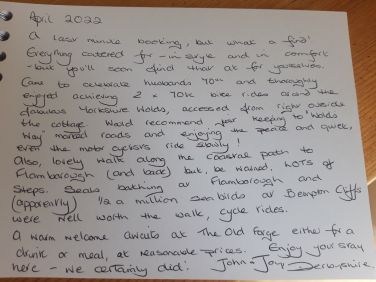 April 2022
A last minute booking, but what a find!
Everything catered for - in style and in comfort
- but you'll soon find that out for yourselves.
Came to celebrate husbands 70th and thoroughly
enjoyed achieving 2 70k bike rides around the
fabulous Yorkshire Wolds, accessed from right outside
the cottage. Would recommend just keeping to Wolds
Way marked roads and enjoying the peace and quiet,
even the motor cyclists ride slowly!
Also, lovely walk along the coastal path to
Flamborough (and back) but, be warned, LOTS OF
steps. Seals bathing at Flamborough and
(apparently) 1/2 a million sea birds at Bempton Cliffs
were well worth the walk, cycle rides.
A warm welcome awaits at The Old Forge either for a
drink or meal, at reasonable prices. Enjoy your stay
here - we certainly did! John + Joy Derbyshire